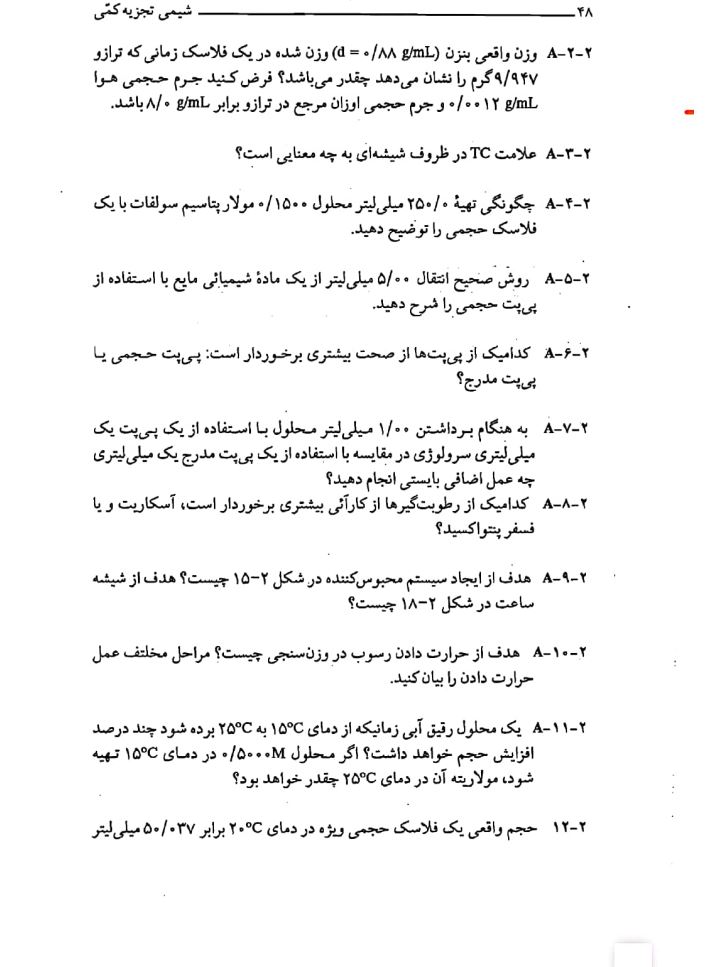 ۴۸ شیمی تجزیه کمّی
A-۲-۲ وزن واقعی بنزن (d = ۰/۸۸ g/mL) وزن شده در یک فلاسک زمانی که ترازو
۹/۹۴۷ گرم را نشان می‌دهد چقدر می‌باشد؟ فرض کنید جرم حجمی هوا
۰/۰۰۱۲ g/mL و جرم حجمی اوزان مرجع در ترازو برابر ۸/۰ g/mL باشد.
A-۳-۲ علامت TC در ظروف شیشه‌ای به چه معنایی است؟
A-۴-۲ چگونگی تهیهٔ ۲۵۰/۰ میلی‌لیتر محلول ۰/۱۵۰۰ مولار پتاسیم سولفات با یک
فلاسک حجمی را توضیح دهید.
A-۵-۲ روش صحیح انتقال ۵/۰۰ میلی‌لیتر از یک مادهٔ شیمیائی مایع با استفاده از
پی‌پت حجمی را شرح دهید.
A-۶-۲ کدامیک از پی‌پت‌ها از صحت بیشتری برخوردار است: پی‌پت حجمی یا
پی‌پت مدرج؟
A-۷-۲ به هنگام برداشتن ۱/۰۰ میلی‌لیتر محلول با استفاده از یک پی‌پت یک
میلی‌لیتری سرولوژی در مقایسه با استفاده از یک پی‌پت مدرج یک میلی‌لیتری
چه عمل اضافی بایستی انجام دهید؟
A-۸-۲ کدامیک از رطوبت‌گیرها از کارآئی بیشتری برخوردار است، آسکاریت و یا
فسفر پنتواکسید؟
A-۹-۲ هدف از ایجاد سیستم محبوس‌کننده در شکل ۲-۱۵ چیست؟ هدف از شیشه
ساعت در شکل ۲-۱۸ چیست؟
A-۱۰-۲ هدف از حرارت دادن رسوب در وزن‌سنجی چیست؟ مراحل مخلتف عمل
حرارت دادن را بیان کنید.
A-۱۱-۲ یک محلول رقیق آبی زمانیکه از دمای ۱۵°C به ۲۵°C برده شود چند درصد
افزایش حجم خواهد داشت؟ اگر محلول ۰/۵۰۰۰M در دمای ۱۵°C تهیه
شود، مولاریته آن در دمای ۲۵°C چقدر خواهد بود؟
۱۲-۲ حجم واقعی یک فلاسک حجمی ویژه در دمای ۲۰°C برابر ۵۰/۰۳۷ میلی‌لیتر